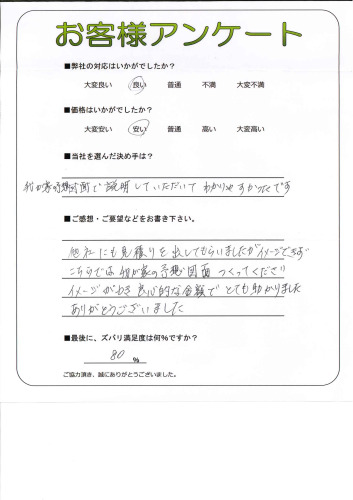 お客様アンケート
■弊社の対応はいかがでしたか？
大変良い 良い 普通 不満 大変不満
■価格はいかがでしたか？
大変安い 安い 普通 高い 大変高い
■当社を選んだ決め手は？
我が家の予想図面で説明していただいてわかりやすかったです
■ご感想・ご要望などをお書き下さい。
他社にも見積りを出してもらいましたがイメージできず
こちらでは我が家の予想図面つくってくださり
イメージがわき良心的な金額でとても助かりました
ありがとうございました
■最後に、ズバリ満足度は何%ですか？
80 %
ご協力頂き、誠にありがとうございました。